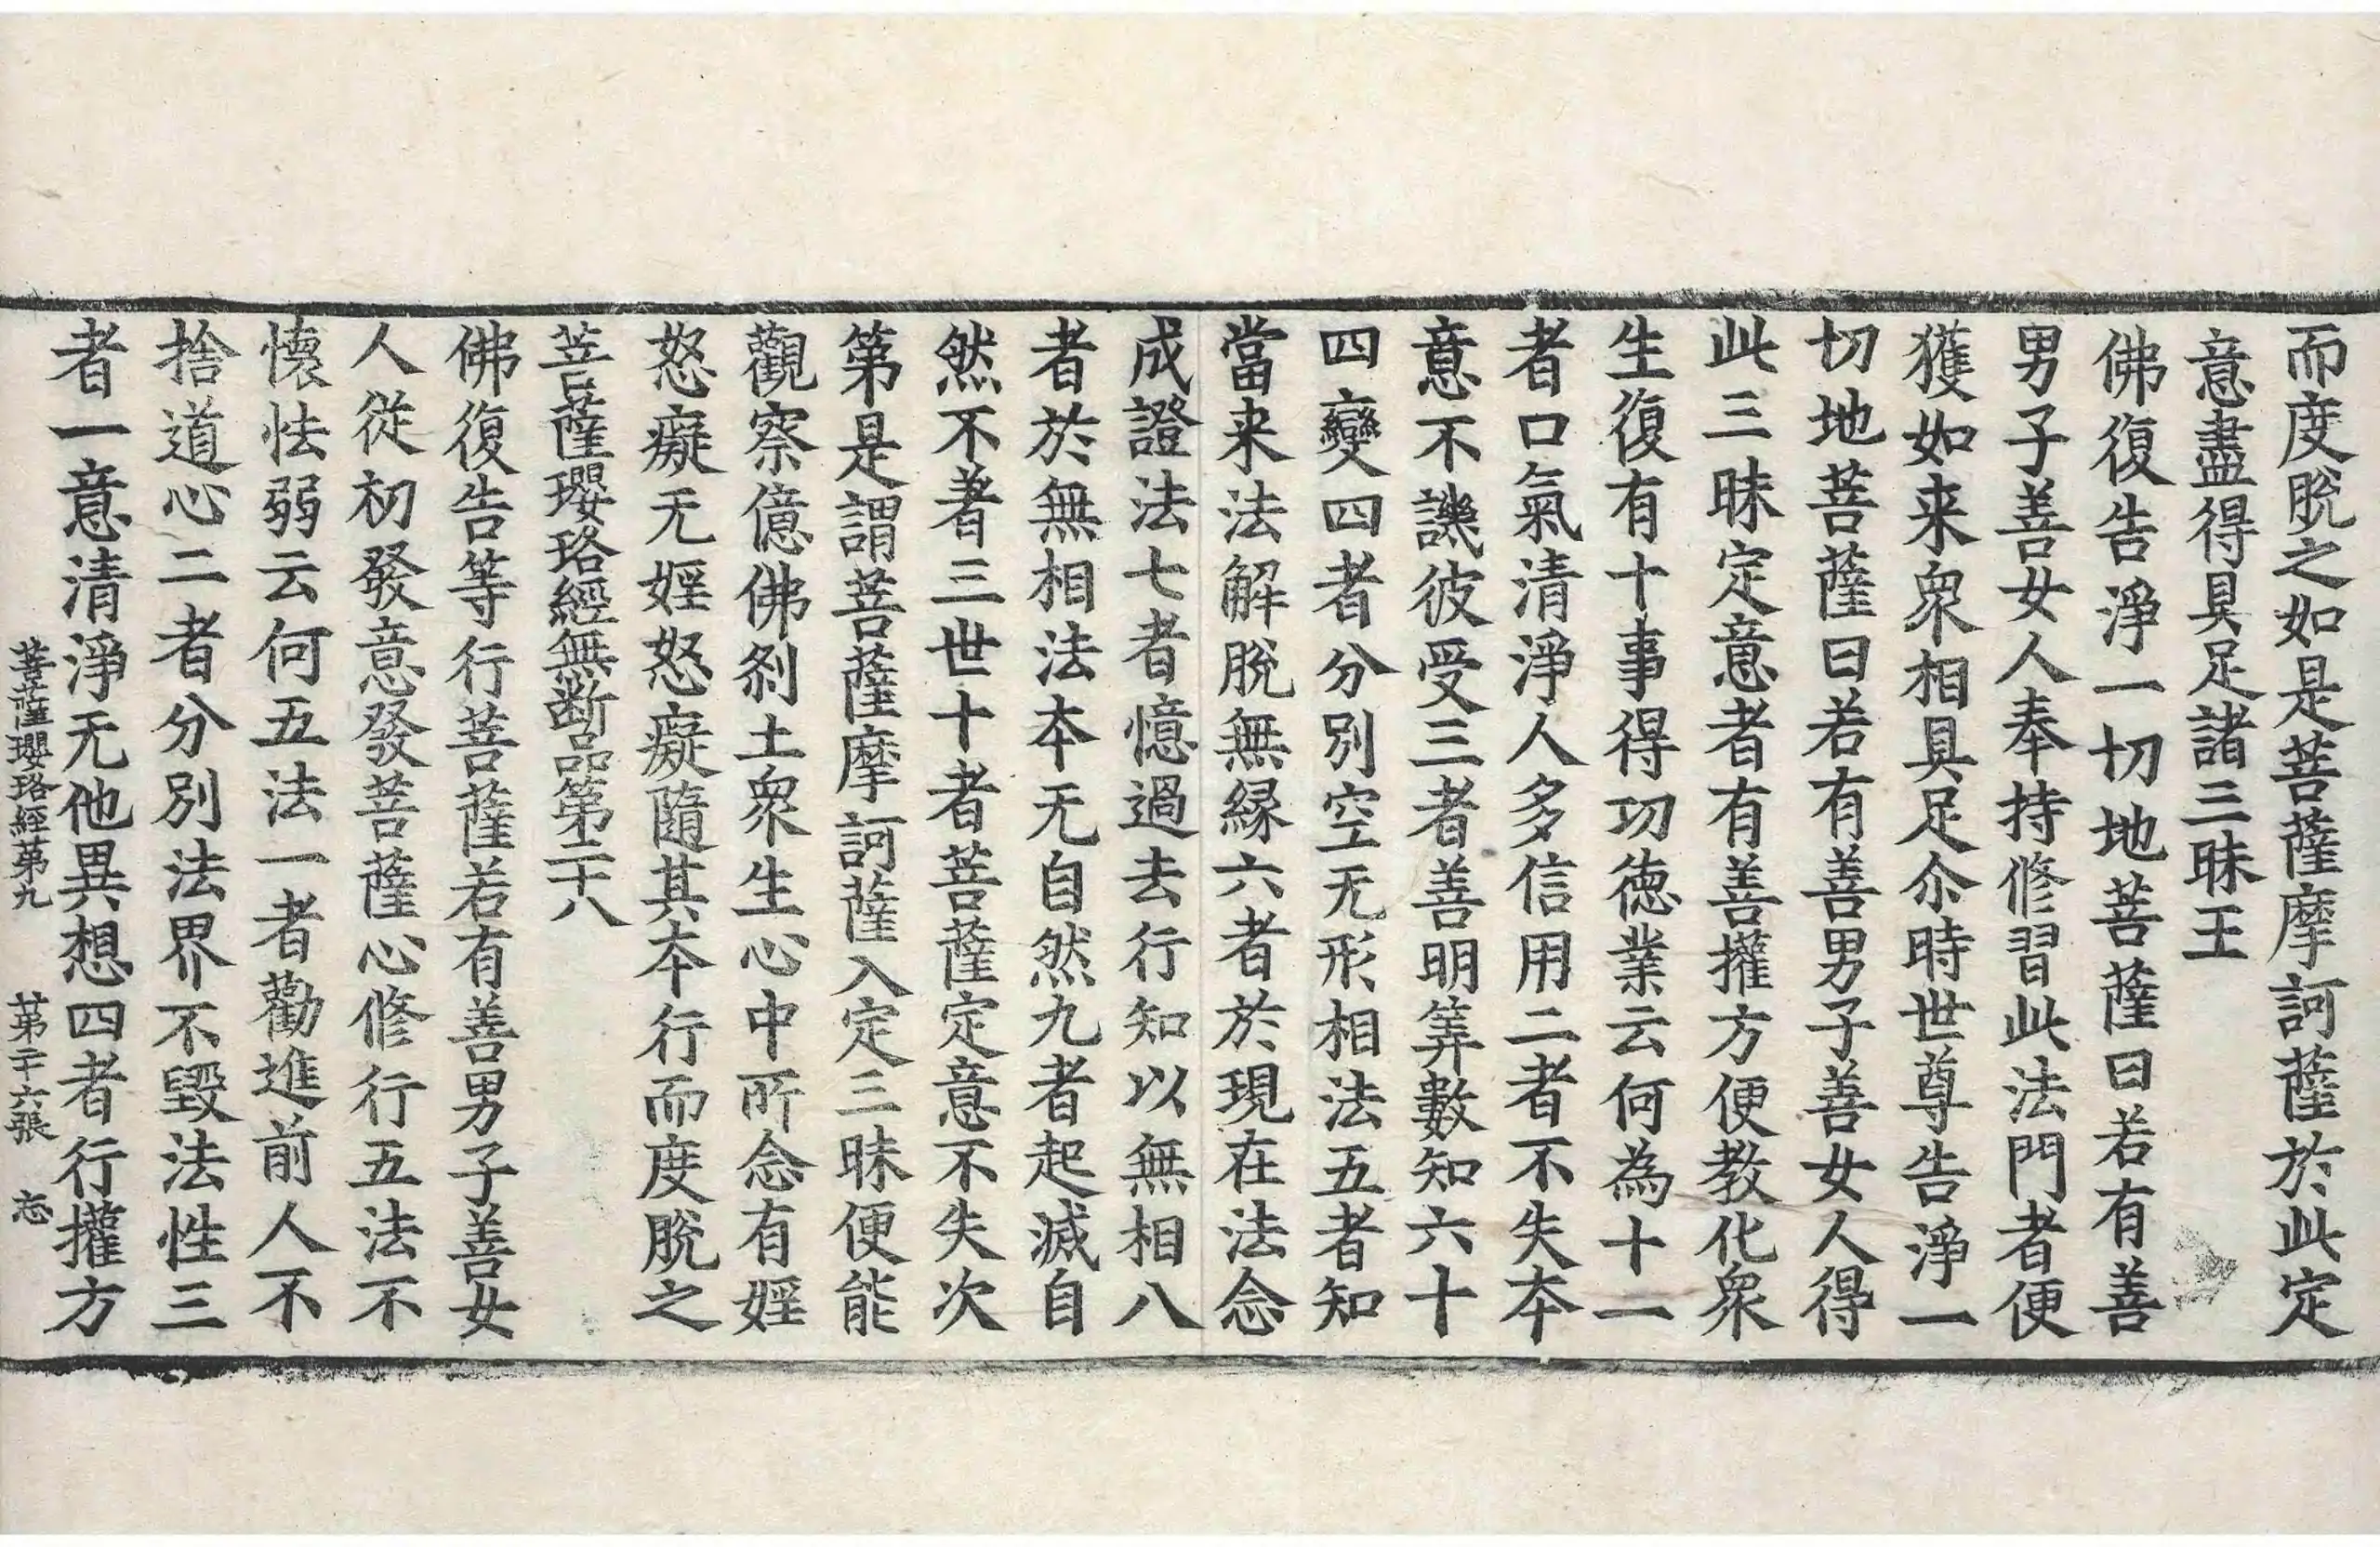 而度脫之如是菩薩摩訶薩於此定
意盡得具足諸三昧王
佛復告淨一切地菩薩曰若有善
男子善女人奉持修習此法門者便
獲如来衆相具足尒時世尊告淨一
切地菩薩曰若有善男子善女人得
此三昧定意者有善攉方便教化衆
生復有十事得功徳業云何為十一
者口氣清淨人多信用二者不失本
意不譏彼受三者善明筭數知六十
四變四者分別空无形相法五者知
當来法解脫無縁六者於現在法念
成證法七者憶過去行知以無相八
者於無相法本无自然九者起滅自
然不著三世十者菩薩定意不失次
第是謂菩薩摩訶薩入定三昧便能
觀察億佛剎土衆生心中所念有婬
怒癡无婬怒癡隨其本行而度脫之
菩薩瓔珞經無断品第二十八
佛復告等行菩薩若有善男子善女
人從初發意發菩薩心修行五法不
懷怯弱云何五法一者勸進前人不
捨道心二者分別法界不毀法性三
者一意清淨无他異想四者行攉方
菩薩瓔珞經第九 第二十六張 忘